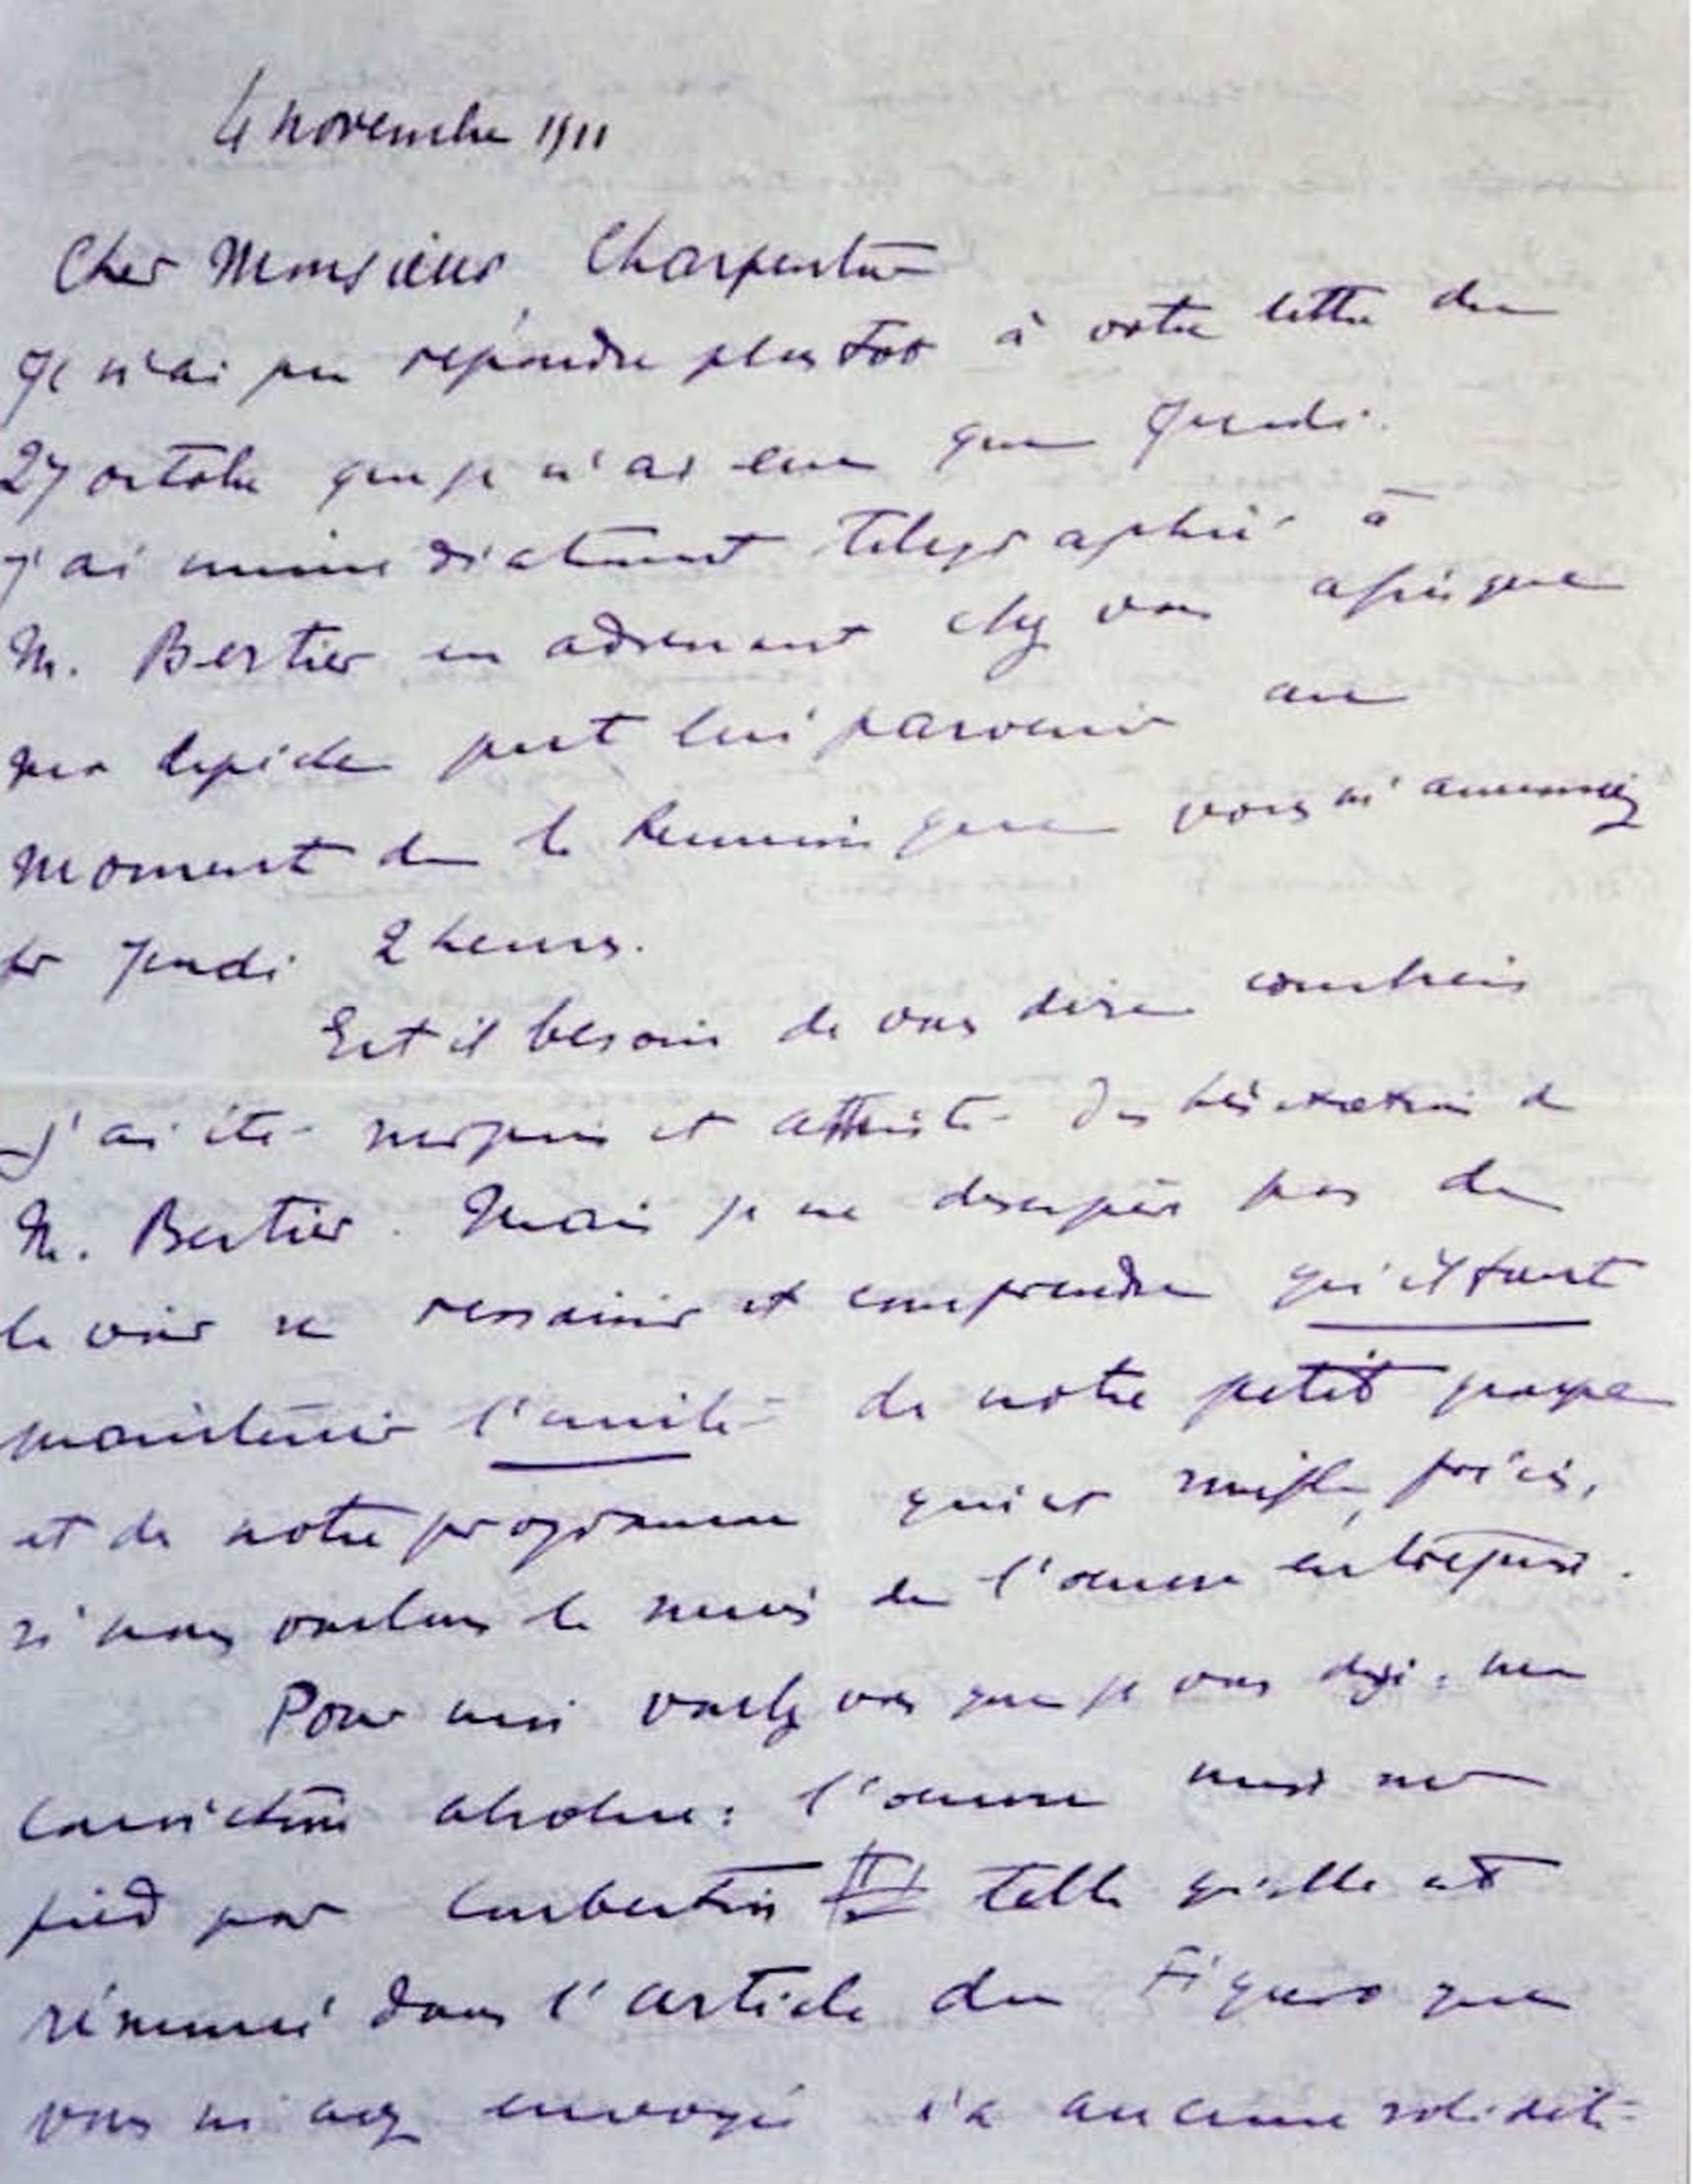 4 novembre 1911
Cher Monsieur Charpentier
Je n'ai pu répondre plus tot à votre lettre du
27 octobre que je n'ai eue que Jeudi.
j'ai immediatement télégraphié à
M. Bertier en adressant chez vous afin que
ma depêche put lui parvenir au
moment de la Reunion que vous m'annonciez
pr Jeudi 2 heures.
Est il besoin de vous dire combien
J'ai été surpris et attristé des hésitations de
M. Bertier. Mais je ne desespère pas de
le voir se ressaisir et comprendre qu'il faut
maintenir l'unité de notre petit groupe
et de notre programme qui est simple, précis,
si nous voulons le succès de l'oeuvre entreprise.
Pour moi voulez vous que je vous dise: ma
conviction absolue: l'oeuvre mise sur
pied par Coubertin telle qu'elle est
résumée dans l'article du Figaro que
vous m'avez envoyé n'a aucune solidité